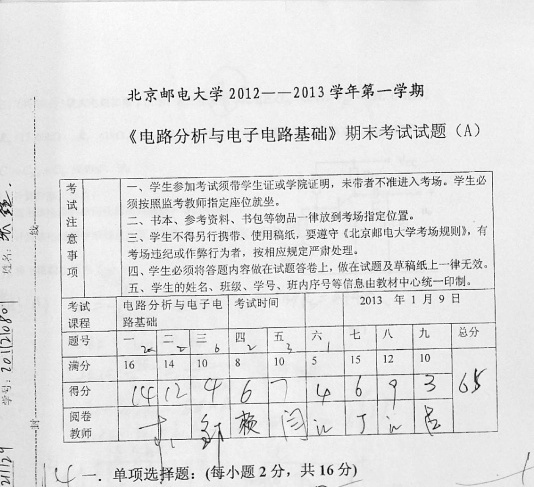 北京邮电大学 2012——2013 学年第一学期
《电路分析与电子电路基础》期末考试试题（A）
考试注意事项
一、学生参加考试须带学生证或学院证明，未带者不准进入考场。学生必
须按照监考教师指定座位就坐。
二、书本、参考资料、书包等物品一律放到考场指定位置。
三、学生不得另行携带、使用稿纸，要遵守《北京邮电大学考场规则》，有
考场违纪或作弊行为者，按相应规定严肃处理。
四、学生必须将答题内容做在试题答卷上，做在试题及草稿纸上一律无效。
五、学生的姓名、班级、学号、班内序号等信息由教材中心统一印制。
考试课程 电路分析与电子电路基础 考试时间 2013 年 1 月 9 日
题号 一 二 三 四 五 六 七 八 九 总分
满分 16 14 10 8 10 5 15 12 10
得分 14 12 4 6 7 4 6 9 3 65
阅卷教师
14 一．单项选择题：(每小题 2 分，共 16 分)
姓名：
学号：
线
封